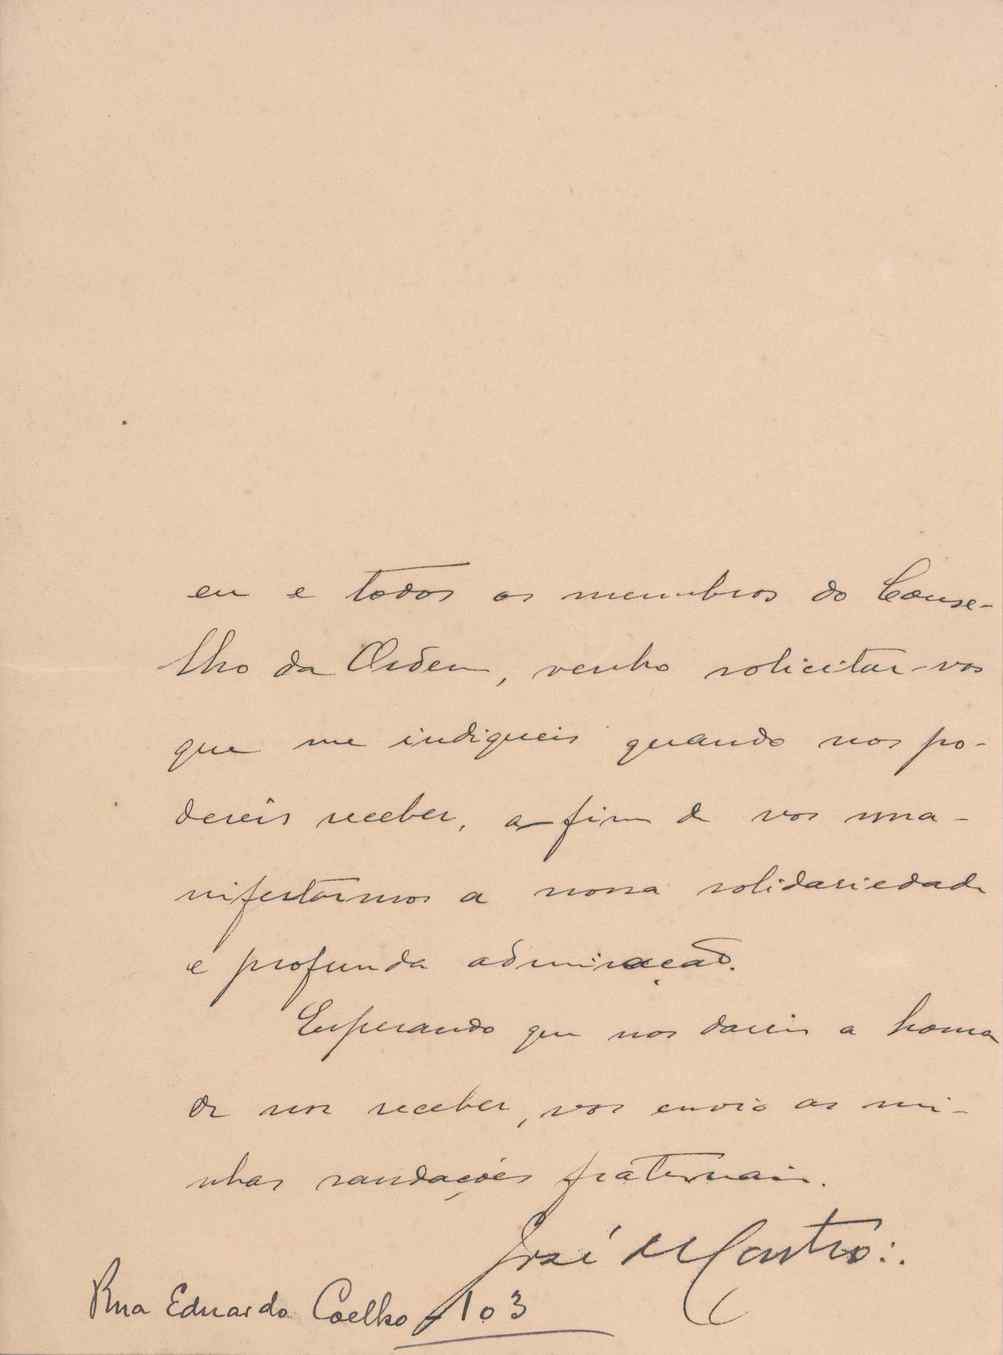 eu e todos os membros do Conse-
lho da Ordem, venho solicitar-vos
que me indiqueis quando nos po-
dereis receber, a fim de vos ma-
nifestarmos a nossa solidariedade
e profunda admiração.
Esperando que nos dareis a honra
de nos receber, vos envio as mi-
nhas saudações fraternais.
José de Castro∴
Rua Eduardo Coelho 103